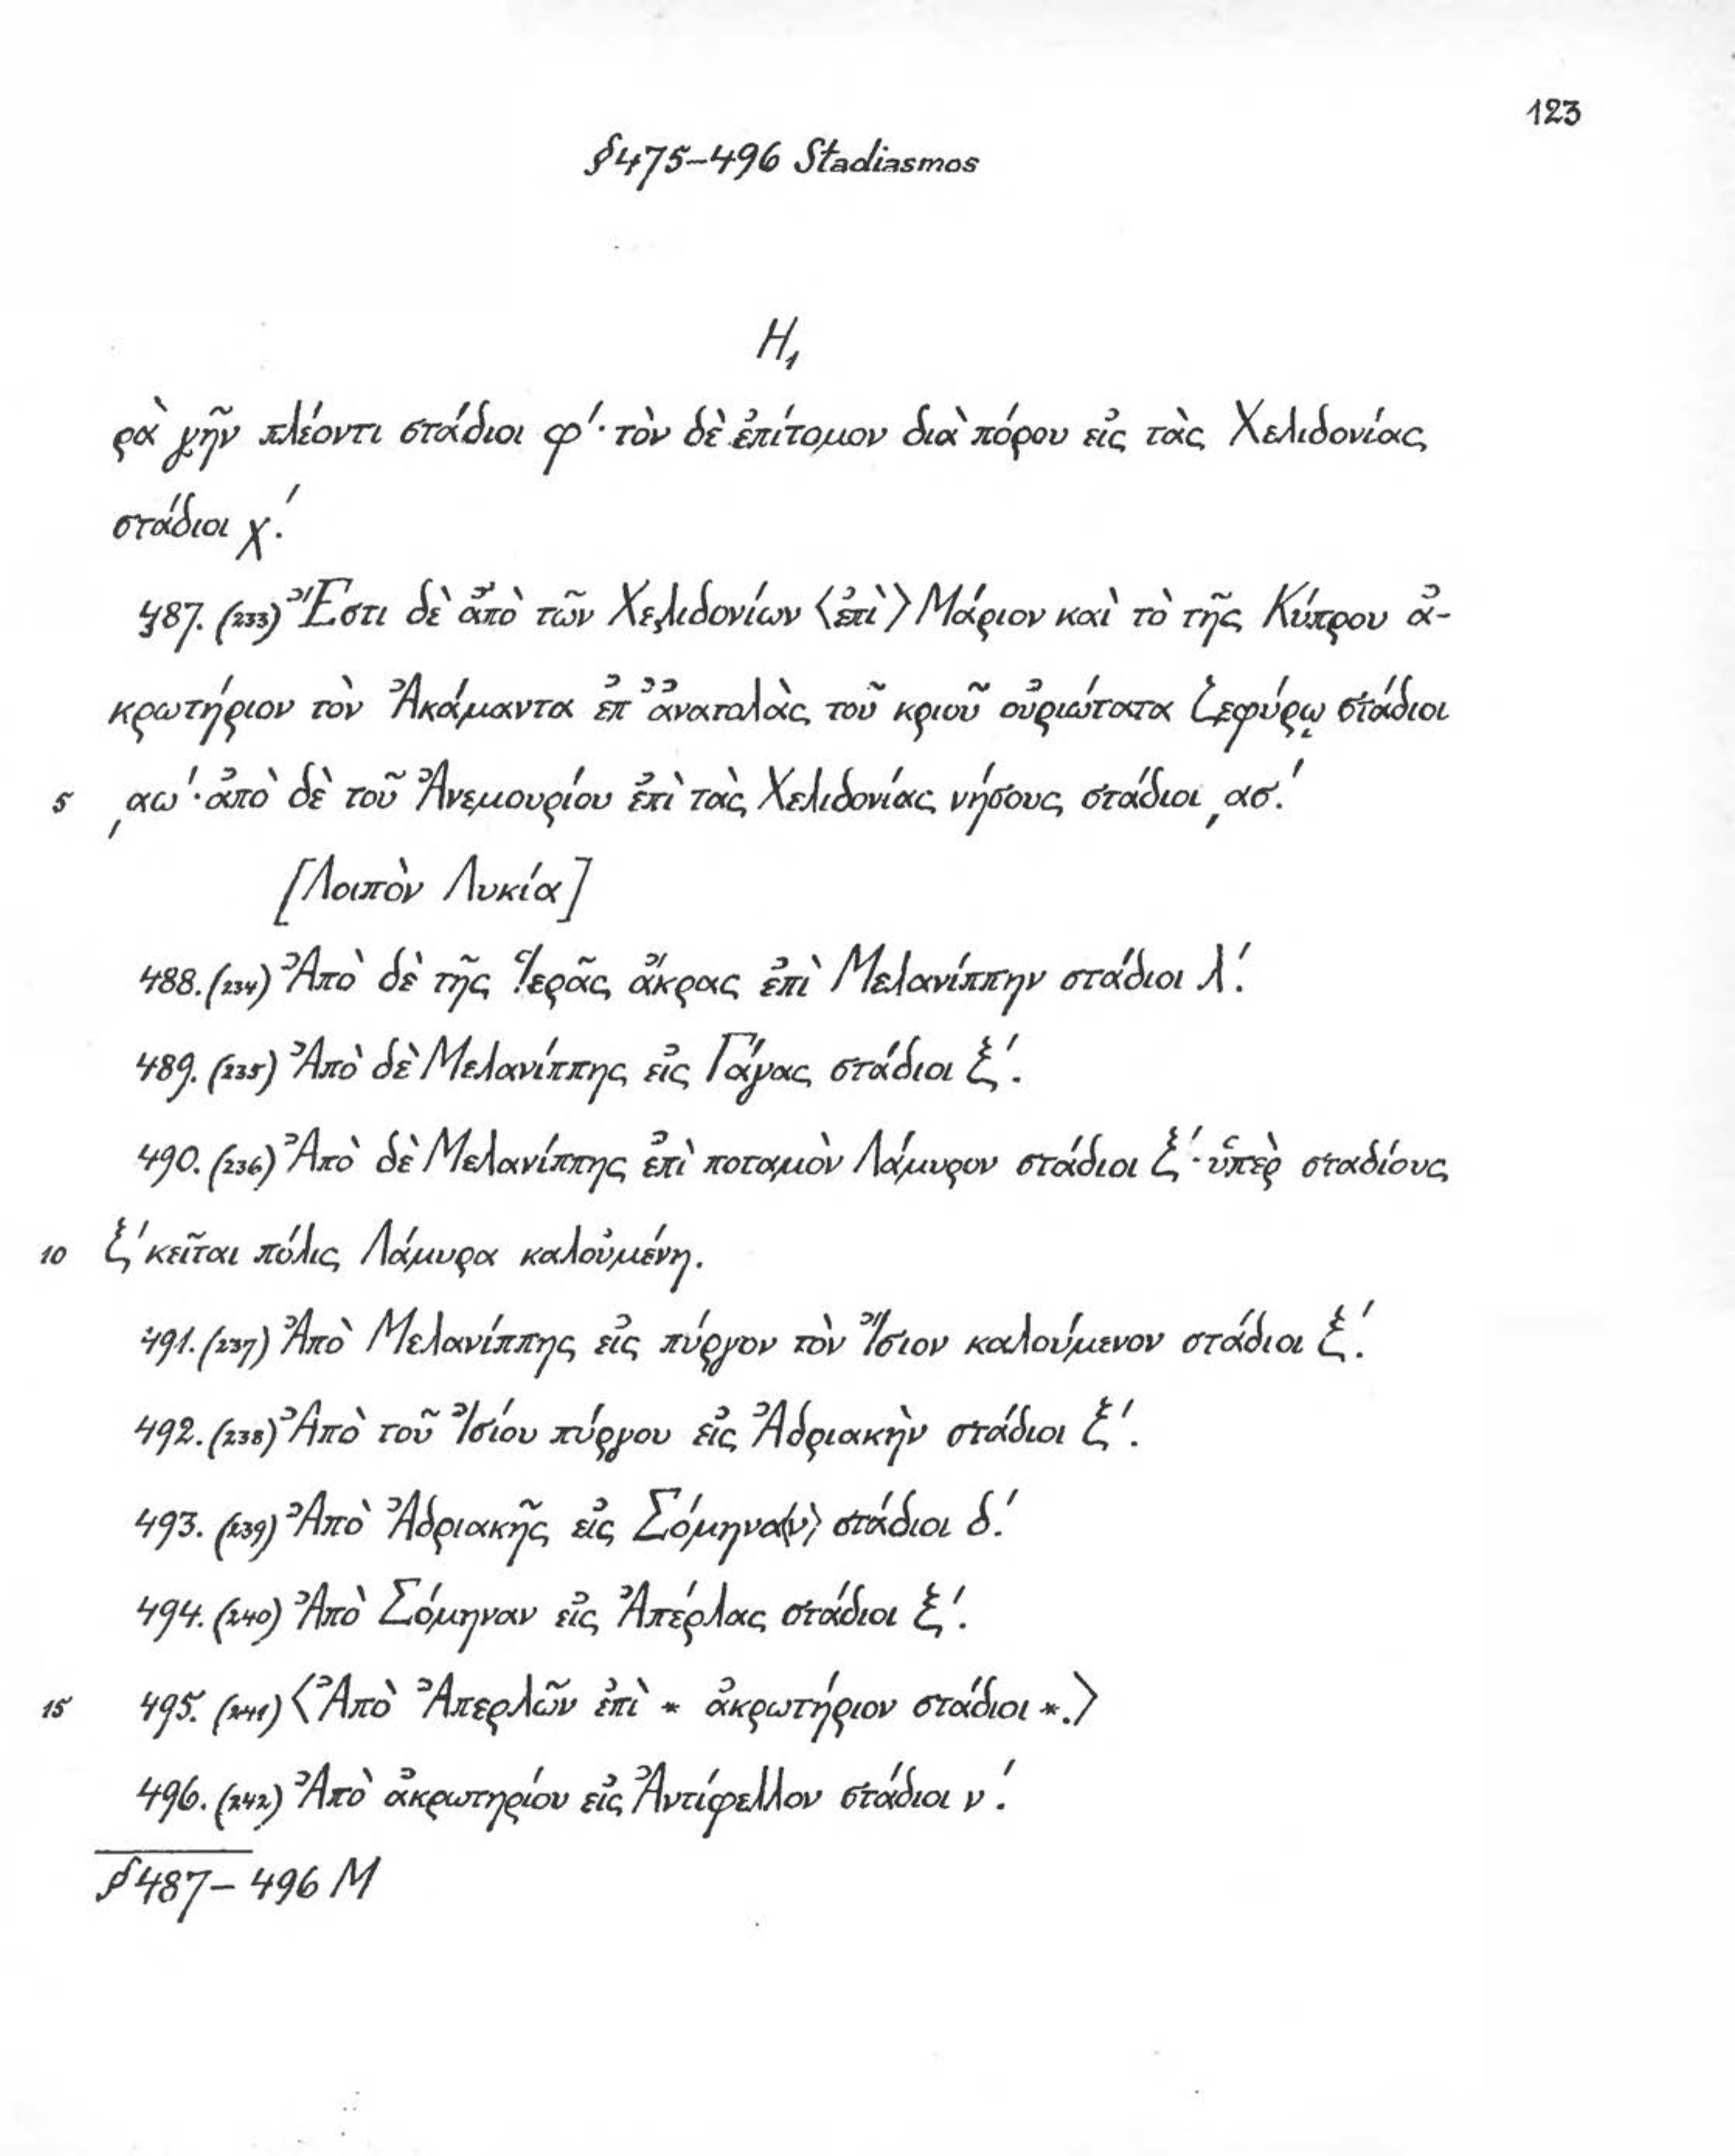 123
§475–496 Stadiasmos
H₁
ρὰ γῆν πλέοντι στάδιοι φʹ· τὸν δὲ ἐπίτομον διὰ πόρου εἰς τὰς Χελιδονίας
στάδιοι χʹ.
487. (233) Ἔστι δὲ ἀπὸ τῶν Χελιδονίων 〈ἐπὶ〉 Μάριον καὶ τὸ τῆς Κύπρου ἀ-
κρωτήριον τὸν Ἀκάμαντα ἐπ᾽ ἀνατολὰς τοῦ κριοῦ οὐριώτατα ζεφύρῳ στάδιοι
5 ͵αωʹ· ἀπὸ δὲ τοῦ Ἀνεμουρίου ἐπὶ τὰς Χελιδονίας νήσους στάδιοι ͵ασʹ.
[Λοιπὸν Λυκία]
488. (234) Ἀπὸ δὲ τῆς Ἱερᾶς ἄκρας ἐπὶ Μελανίππην στάδιοι λʹ.
489. (235) Ἀπὸ δὲ Μελανίππης εἰς Γάγας στάδιοι ξʹ.
490. (236) Ἀπὸ δὲ Μελανίππης ἐπὶ ποταμὸν Λάμυρον στάδιοι ξʹ· ὑπὲρ σταδίους
10 ξʹ κεῖται πόλις Λάμυρα καλουμένη.
491. (237) Ἀπὸ Μελανίππης εἰς πύργον τὸν Ἴσιον καλούμενον στάδιοι ξʹ.
492. (238) Ἀπὸ τοῦ Ἰσίου πύργου εἰς Ἀδριακὴν στάδιοι ξʹ.
493. (239) Ἀπὸ Ἀδριακῆς εἰς Σόμηνα〈ν〉 στάδιοι δʹ.
494. (240) Ἀπὸ Σόμηναν εἰς Ἀπέρλας στάδιοι ξʹ.
15 495. (241) 〈Ἀπὸ Ἀπερλῶν ἐπὶ * ἀκρωτήριον στάδιοι *.〉
496. (242) Ἀπὸ ἀκρωτηρίου εἰς Ἀντίφελλον στάδιοι νʹ.
§487–496 M